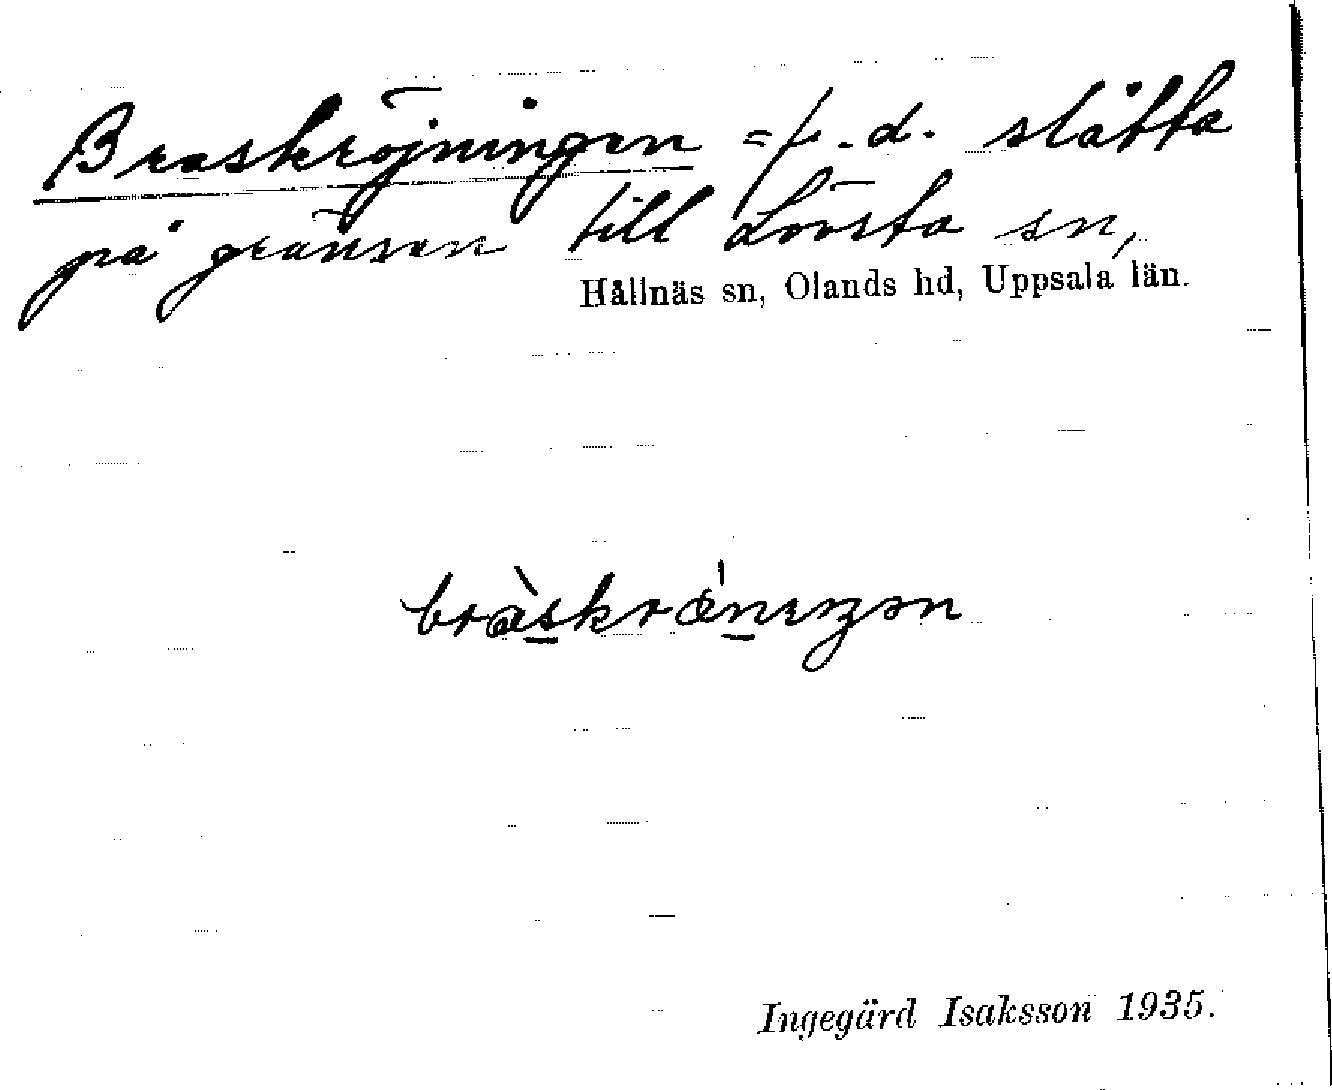 Braskröjningen = f. d. slåtta
på gränsen till Lövsta sn,
Hållnäs sn, Olands hd, Uppsala län.
Ingegärd Isaksson 1935.